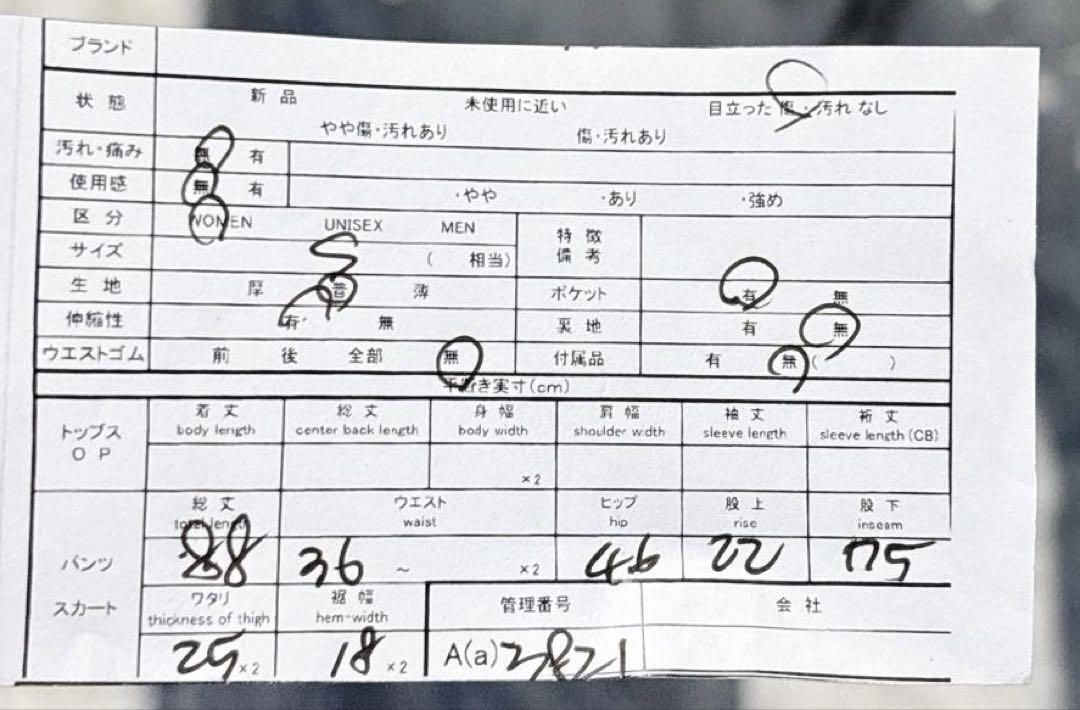 ブランド
状態 新品 未使用に近い 目立った 傷・汚れ なし
やや傷・汚れあり 傷・汚れあり
汚れ・痛み 無 有
使用感 無 有 ・やや ・あり ・強め
区分 WOMEN UNISEX MEN 特徴
サイズ S ( 相当) 備考
生地 厚 普 薄 ポケット 有 無
伸縮性 有 無 裏地 有 無
ウエストゴム 前 後 全部 無 付属品 有 無 ( )
平置き実寸(cm)
着丈 総丈 身幅 肩幅 袖丈 裄丈
トップス body length center back length body width shoulder width sleeve length sleeve length (CB)
OP
×2
総丈 ウエスト ヒップ 股上 股下
total length waist hip rise inseam
パンツ 88 36 ~ ×2 46 22
スカート ワタリ 裾幅 管理番号 会社
thickness of thigh hem-width
25 ×2 18 ×2 A(a)